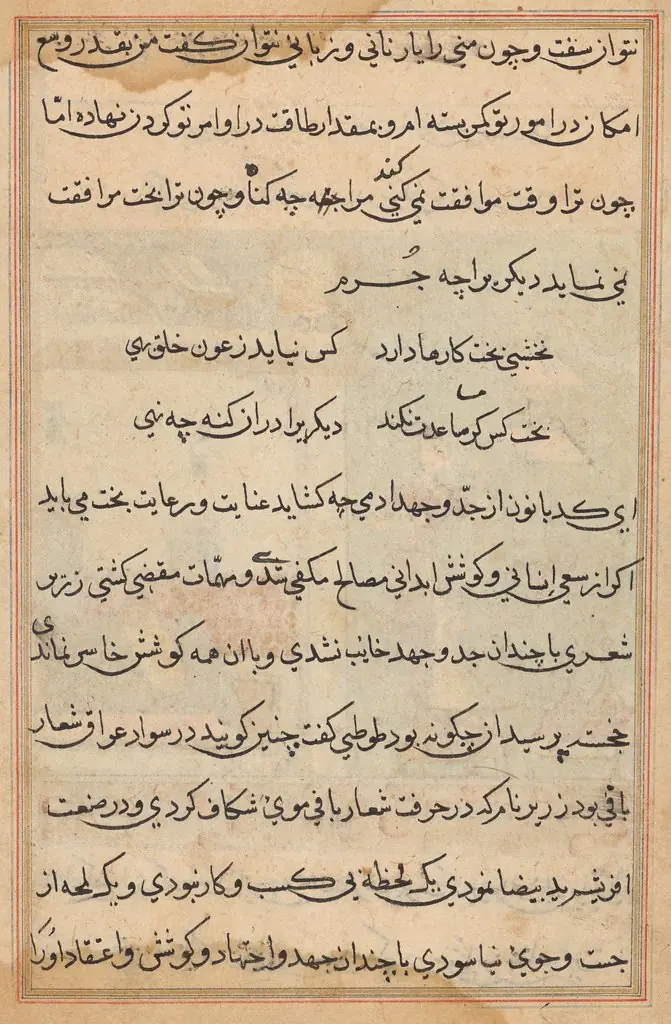 نتوان سفت و چون مني را يار ناني و زباني نتوان كفت من بقدر وسع
امكان در امور تو كمر بسته ام و بمقدار طاقت در اوامر تو كردن نهاده امّا
چون ترا وقت موافقت نمي كند مرا چه كناه و چون ترا بخت مرافقت
نمي نمايد ديكريرا چه جُرم
نخشبي بخت كارها دارد كس نيايد ز عون خلق بهي
بخت كس كر مساعدت نكند ديكريرا دران كنه چه نهي
اي كدبانو از جدّ و جهد ادمي چه كشايد عنايت و رعايت بخت مي بايد
اكر از سعي انساني و كوشش ابداني مصالح مكفي شدي و مهمّات مقضي كشتي زرير
شعري با چندان جد و جهد خايب نشدي و باان همه كوشش خاسر نماندي
خجسته پرسيد ان چكونه بود طوطي كفت چنين كويند در سواد عراق شعار
بافي بود زرير نام كه در حرفت شعار بافي موي شكاف كردي و در صنعت
افريشم يد بيضا نمودي يك لحظه بي كسب و كار نبودي و يك لمحه از
جست و جوي نياسودي با چندان جهد و اجتهاد و كوشش و اعتقاد اورا